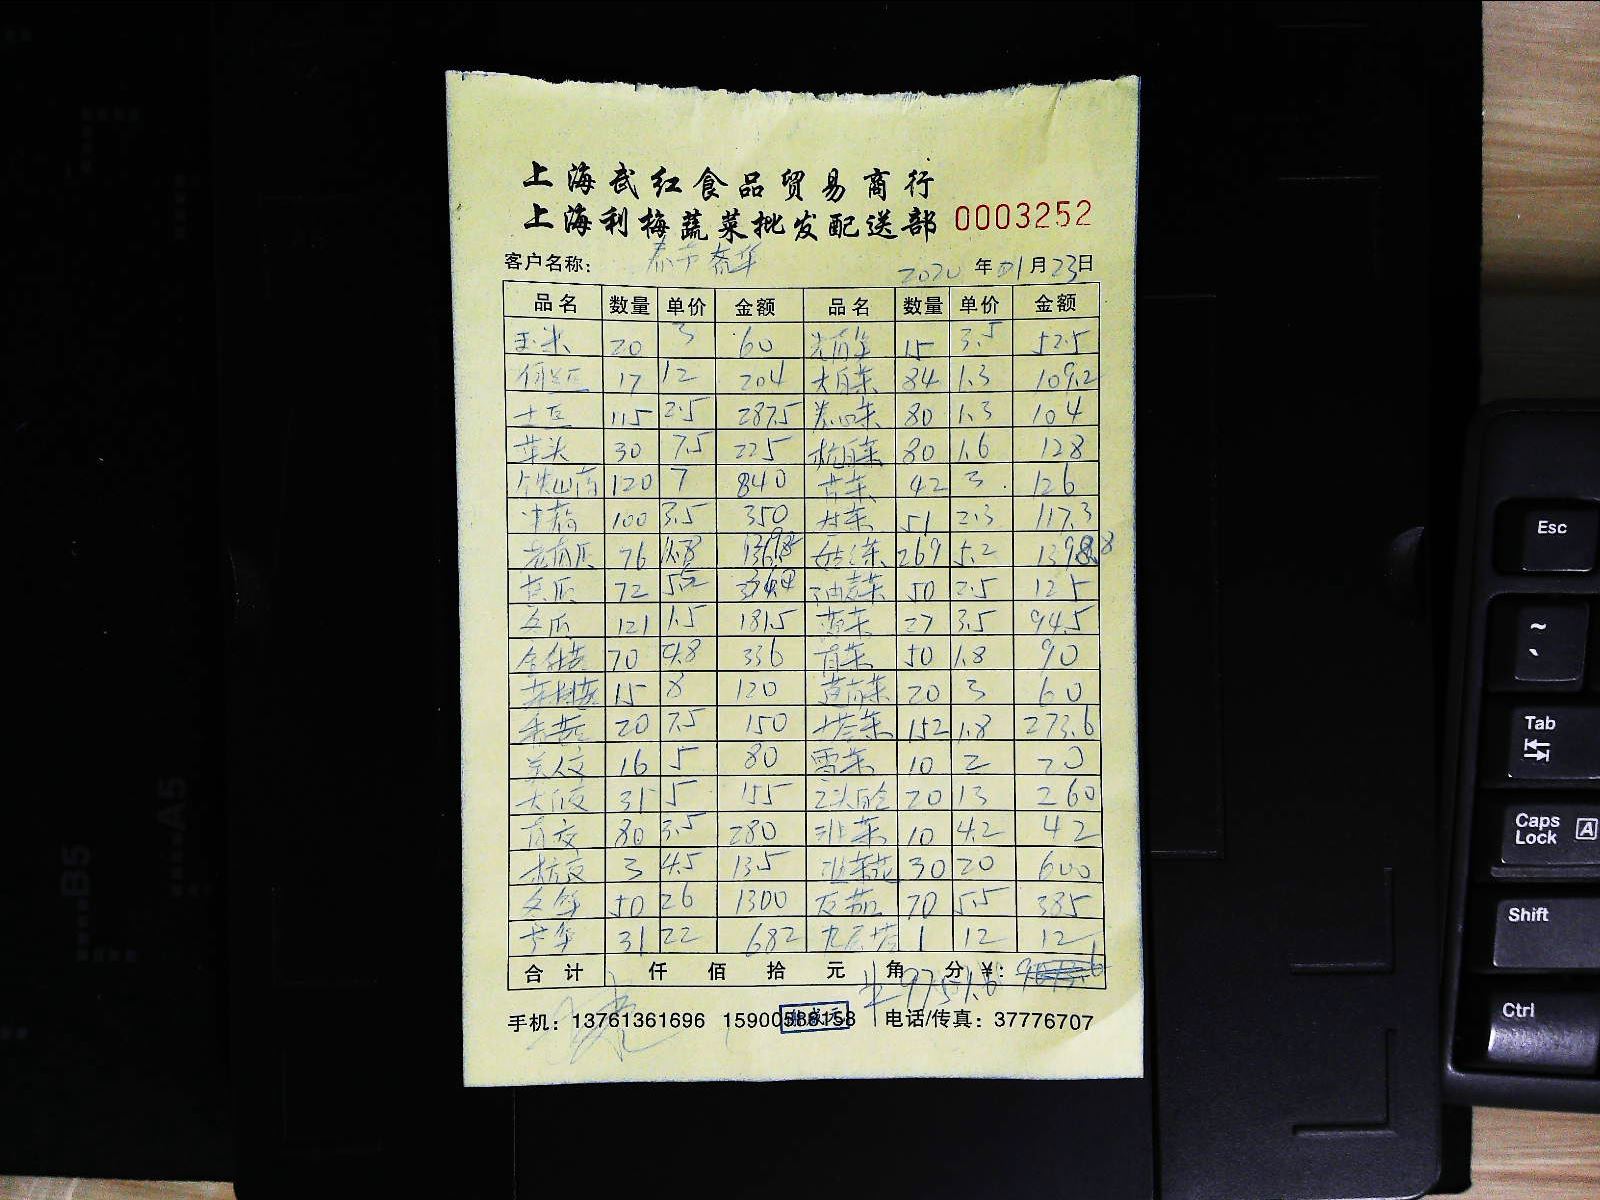 上海武红食品贸易商行
上海利梅蔬菜批发配送部 0003252
客户名称: 2020年01月23日
品名 数量 单价 金额 品名 数量 单价 金额
玉米 20 3 60 15 3.5 52.5
荷兰豆 17 12 204 大白菜 84 1.3 109.2
土豆 115 2.5 287.5 卷心菜 80 1.3 104
芋头 30 7.5 225 杭白菜 80 1.6 128
铁山药 120 7 840 42 3 126
100 3.5 350 51 2.3 117.3
老南瓜 76 1.8 269 5.2 1398.8
72 油麦菜 50 2.5 125
冬瓜 121 1.5 181.5 27 3.5 94.5
金针菇 70 4.8 336 50 1.8 90
茶树菇 15 8 120 20 3 60
香菇 20 7.5 150 塔菜 152 1.8 273.6
美人交 16 5 80 雪菜 10 2 20
31 5 155 20 13 260
80 3.5 280 韭菜 10 4.2 42
杭交 3 4.5 13.5 韭菜花 30 20 600
冬笋 50 26 1300 70 5.5 385
31 22 682 九层塔 1 12 12
合计 仟 佰 拾 元 角 分 ¥: 9751.6
手机: 13761361696 15900588158 电话/传真: 37776707